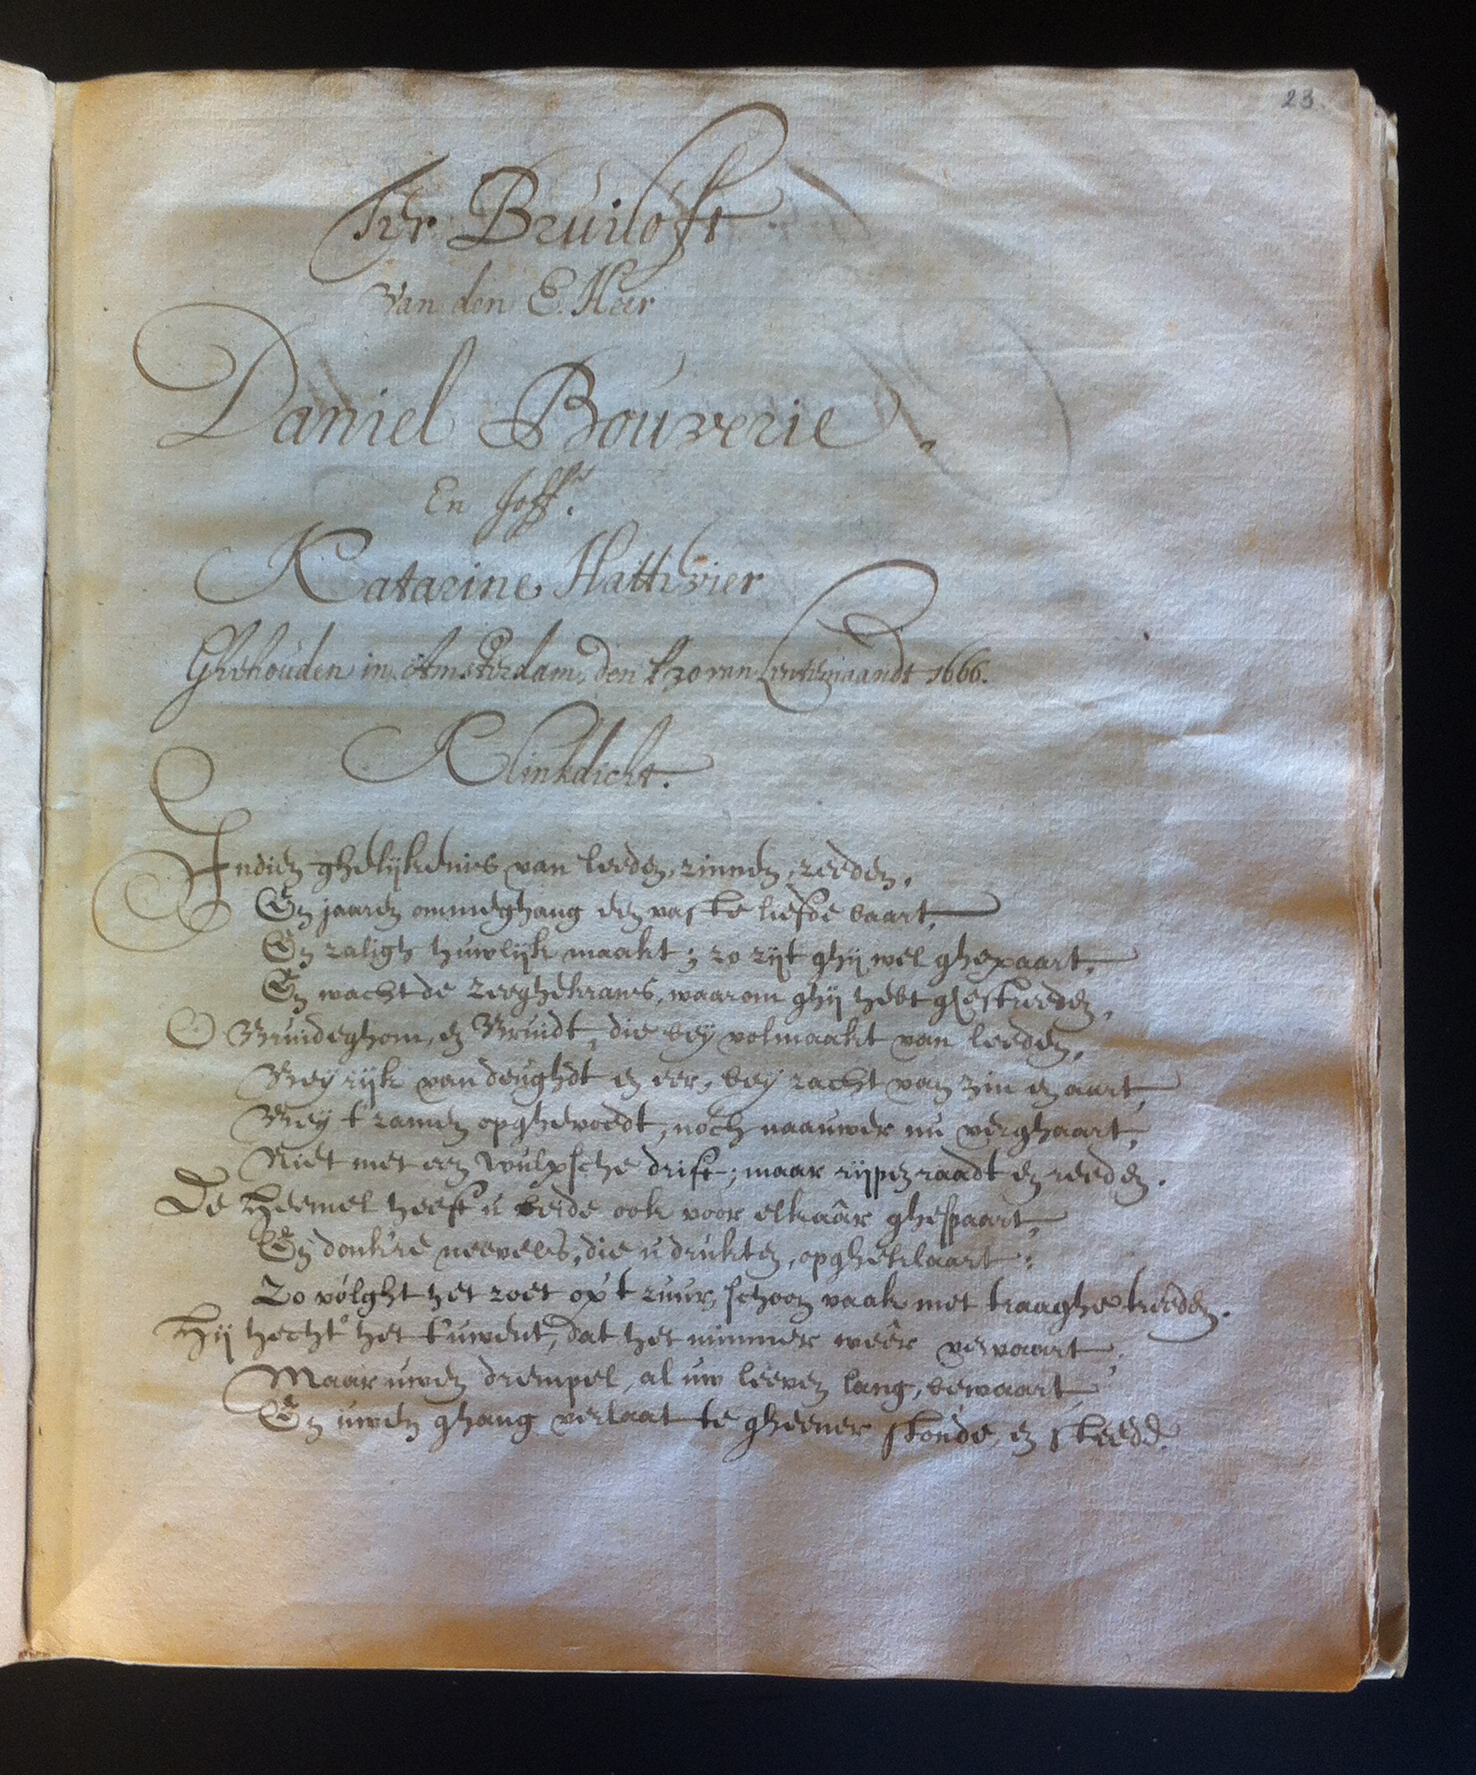 23.
Ter Bruiloft
Van den E. Heer
Daniel Bouverie,
En Joffr.
Katarine Hattuvier
Ghehouden in Amsterdam, den van Lentemaandt 1666.
Klinkdicht.
Indien ghelijkenis van leeden, zinnen, zeeden,
En jaaren ommeghang een vaste liefde baart,
En zaligh huwlijk maakt; zo zijt ghij wel ghepaart,
En wacht de zeeghekrans, waarom ghij hebt ghestreeden,
O Bruideghom, en Bruidt, die bey volmaakt van leeden,
Bey rijk van deughdt en eer, bey zacht van zin en aart,
Bey t'zamen opghevoedt, noch naauwer nu verghaart,
Niet met een wulpsche drift; maar rijpen raadt en reeden.
De Heemel heeft u beide ook voor elkaâr ghespaart,
En donk're neevels, die u drukten, opgheklaart:
Zo volght het zoet op't zuur, schoon vaak met traaghe treeden.
Hij hecht' het t'uwent, dat het nimmer weêr vervaart;
Maar uwen drempel, al uw leeven lang, bewaart,
En uwen ghang verlaat te gheener stonde, en steede.